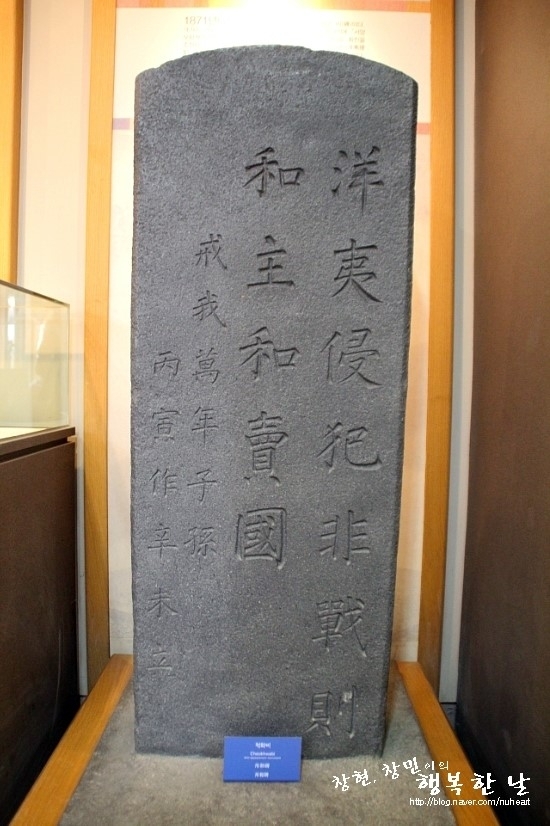 1871
洋夷侵犯非戰則
和主和賣國
戒我萬年子孫
丙寅作辛未立
척화비
창현, 창민이의
행복한 날
http://blog.naver.com/nuheart